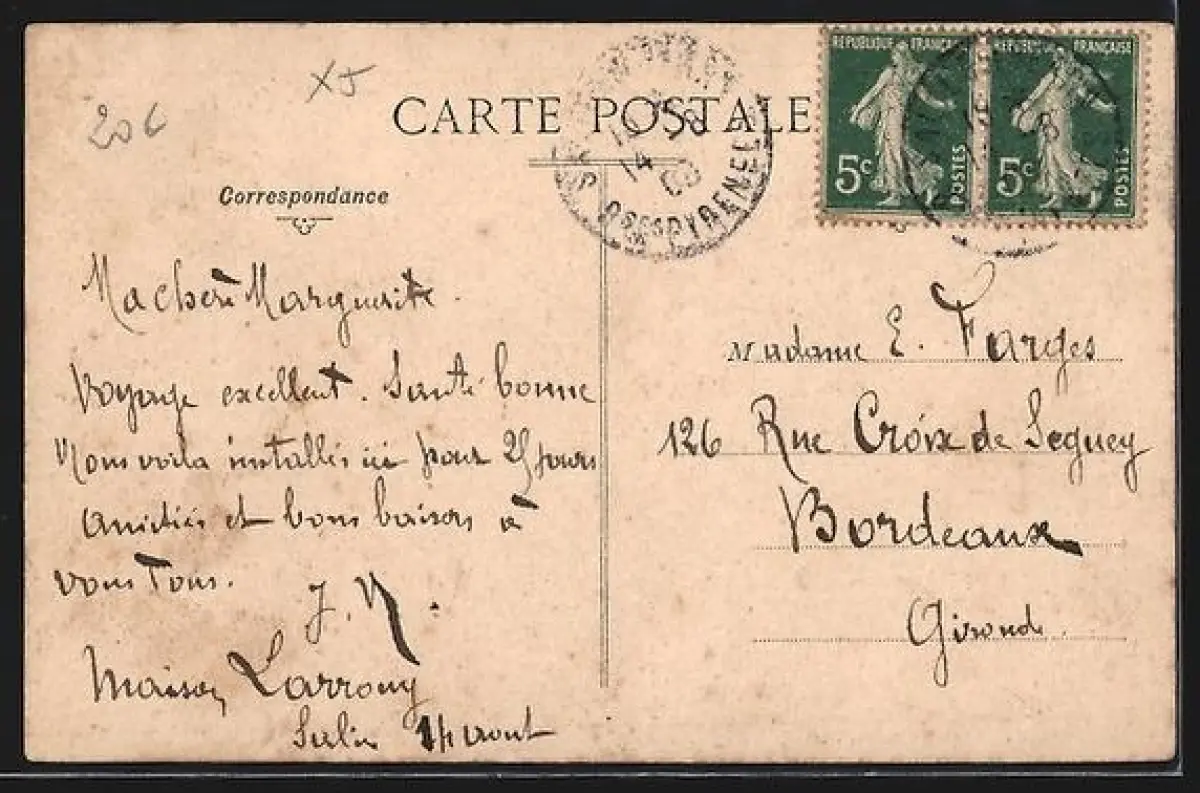 206
XJ
CARTE POSTALE
Correspondance
REPUBLIQUE FRANÇAISE
5c
POSTES
REPUBLIQUE FRANÇAISE
5c
POSTES
14
Bses PYRENEES
Ma chère Marguerite.
Voyage excellent. Santé bonne
Nous voila installés ici pour 25 jours
Amitiés et bons baisers à
vous Tous.
J. N.
Maison Larrouy
Salies 14 aout
Madame E. Farges
126 Rue Croix de Seguey
Bordeaux
Gironde.